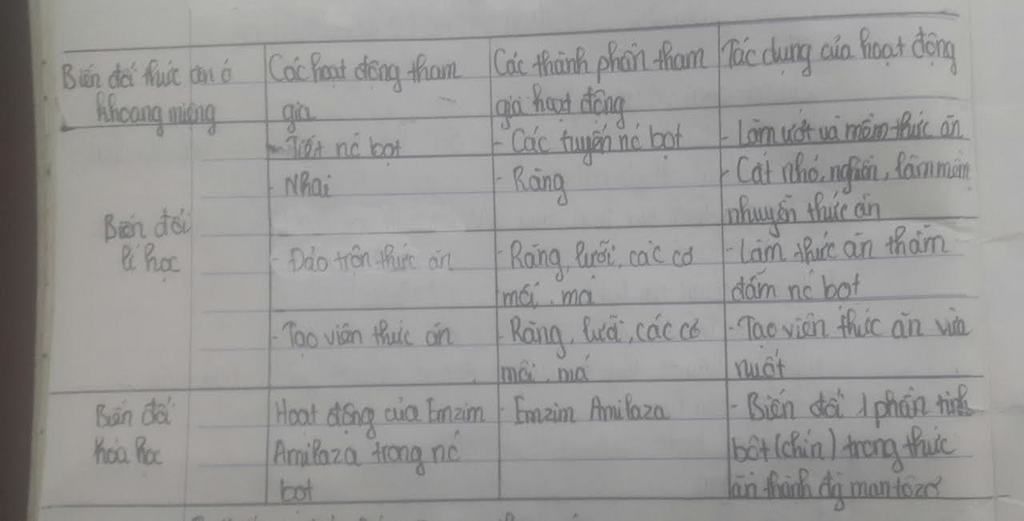 Biến đổi thức ăn ở khoang miệng
Các hoạt động tham gia
Các thành phần tham gia hoạt động
Tác dụng của hoạt động
Biến đổi lí học
- Tiết nc bọt
- Các tuyến nc bọt
- Làm ướt và mềm thức ăn
- Nhai
- Răng
- Cắt nhỏ, nghiền, làm mềm
nhuyễn thức ăn
- Đảo trộn thức ăn
- Răng, lưỡi, các cơ
môi, má
- Làm thức ăn thấm
đẫm nc bọt
- Tạo viên thức ăn
- Răng, lưỡi, các cơ
môi, má
- Tạo viên thức ăn vừa
nuốt
Biến đổi
hóa học
Hoạt động của Emzim
Amilaza trong nc
bọt
- Emzim Amilaza
- Biến đổi 1 phần tinh
bột (chín) trong thức
ăn thành đg mantôzơ